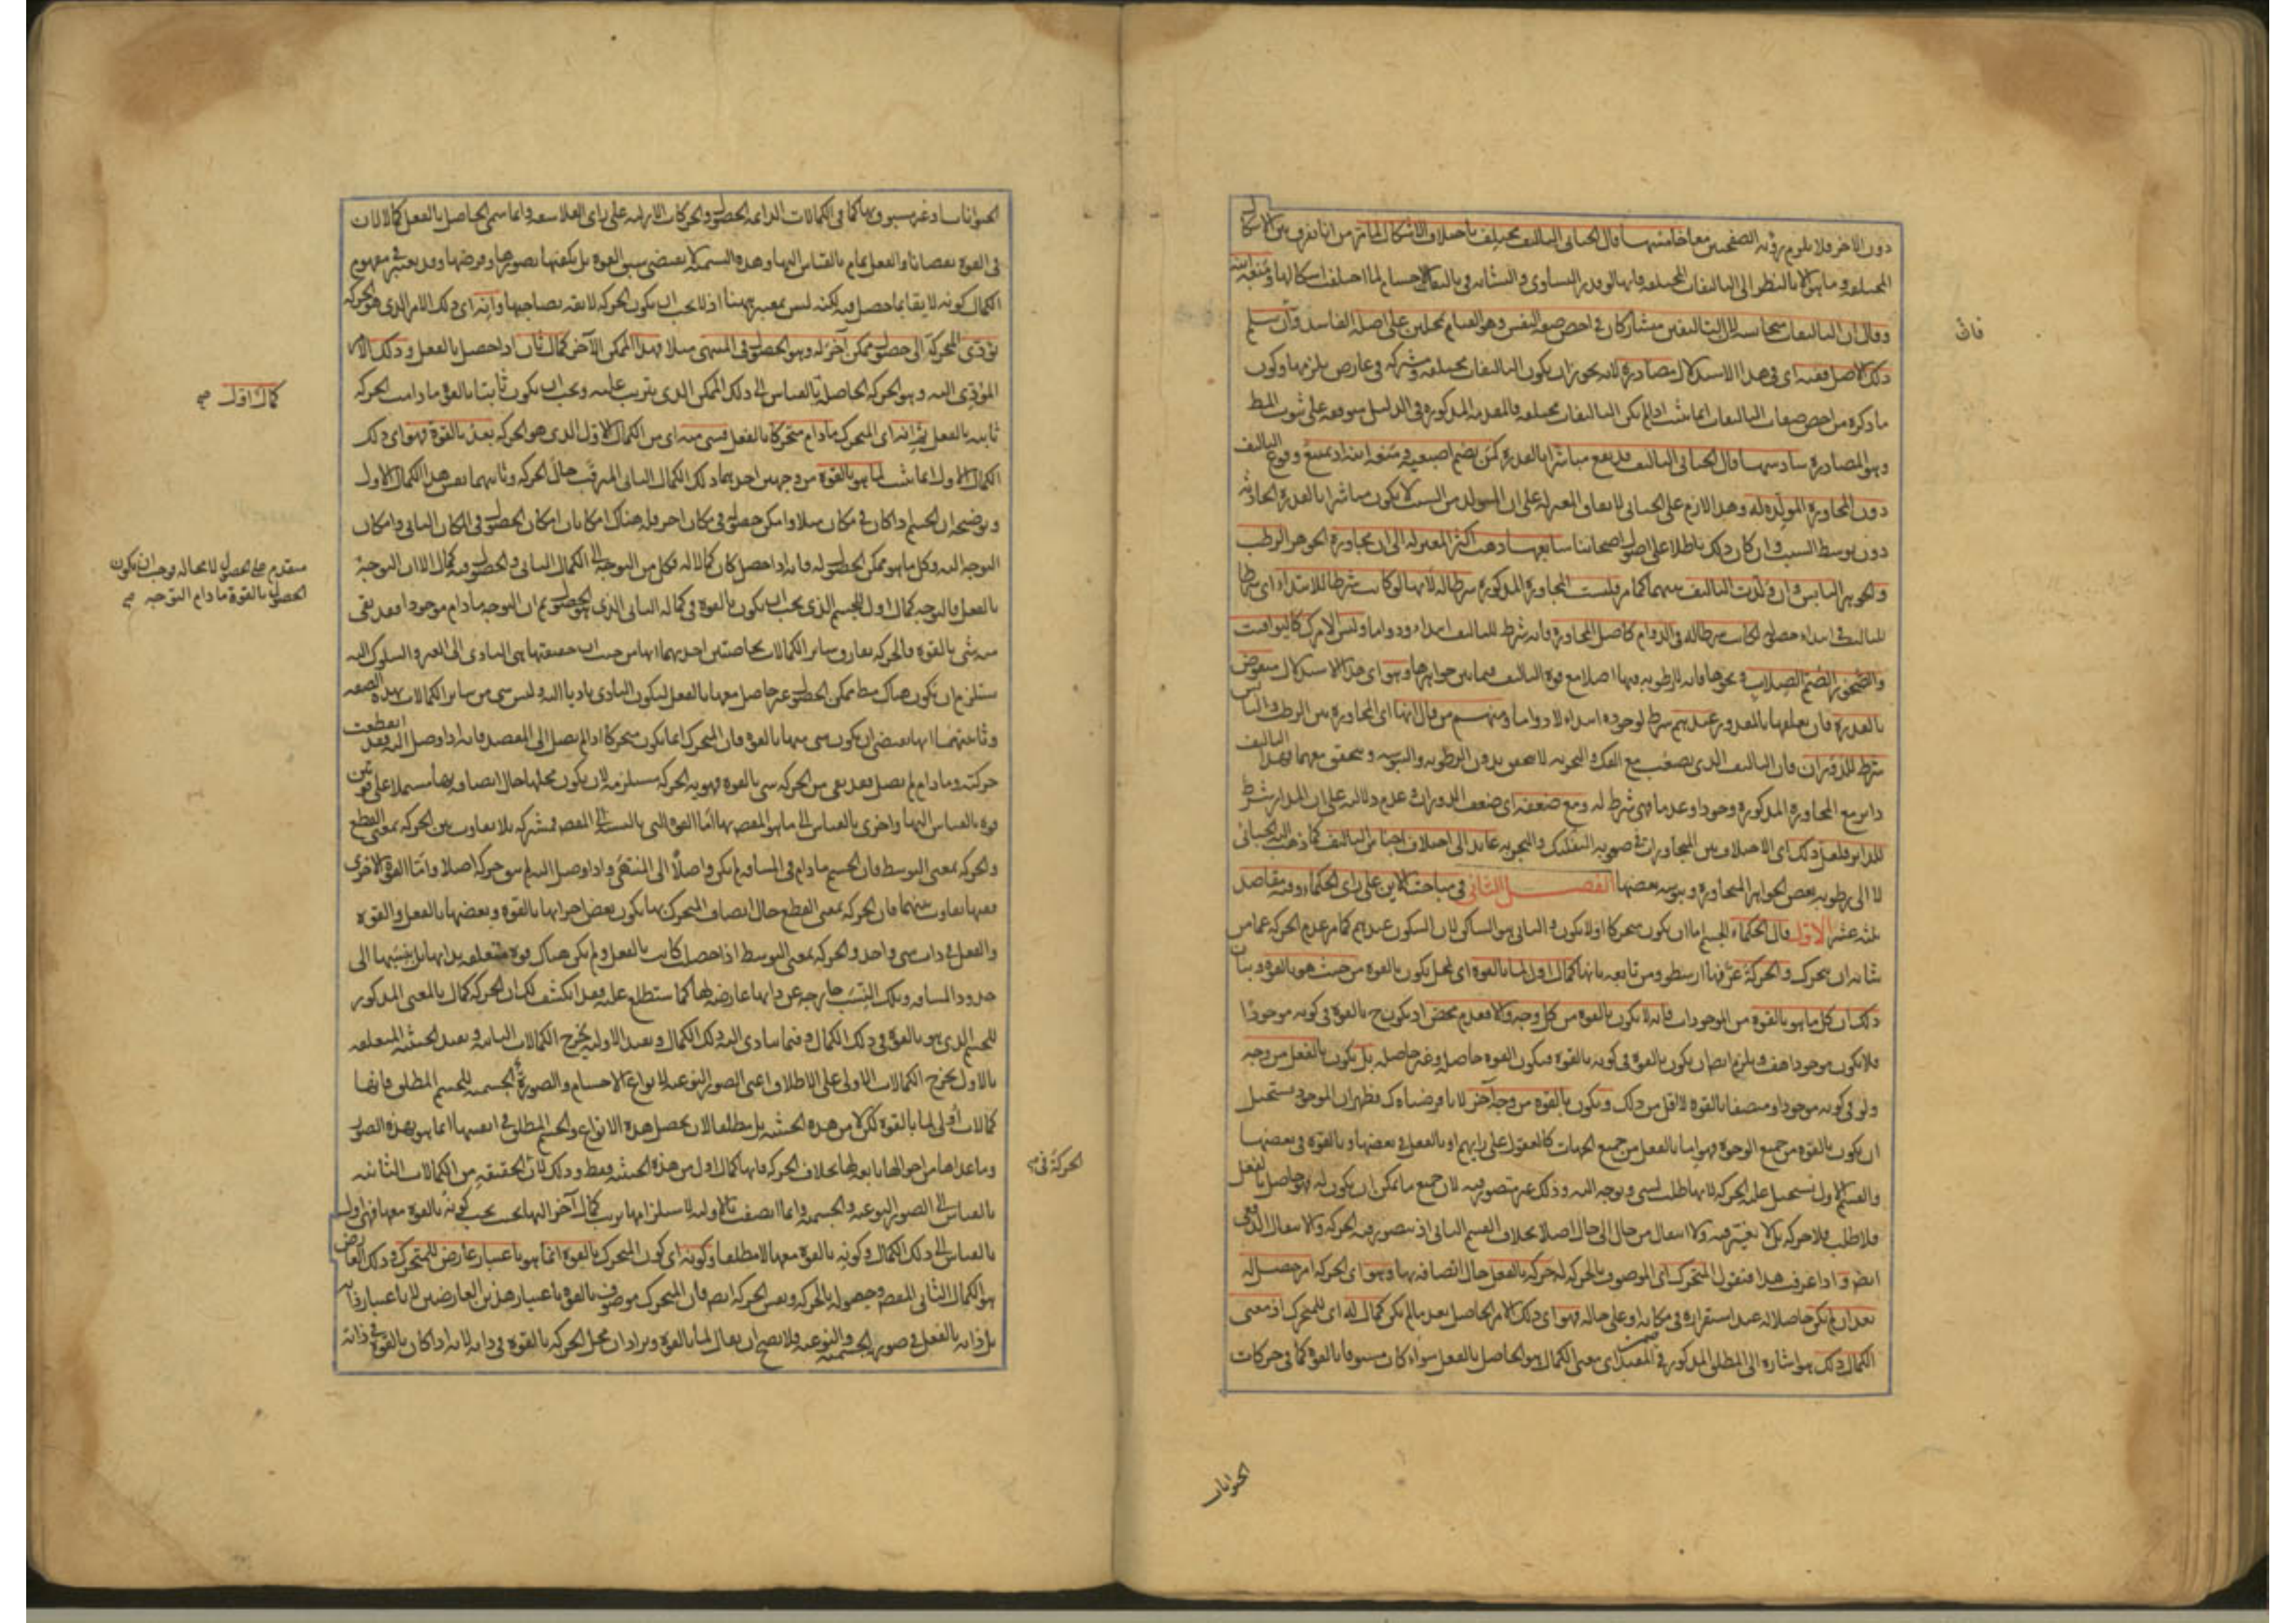 دون الآخر فلا يلزم رؤية الصفحتين معا خامسها قال الجبائي التأليف يختلف باختلاف الأشكال لما مر من انا نفرق بين الاشكال
المختلفة وما هو إلا بالنظر الى التأليفات المختلفة فانها لو قدر التساوي والتشابه في تأليف الاجسام لما اختلفت اشكالها ومنعه ابنه
وقال ان التأليفات متجانسة لان التأليفين مشتركان في اخص صفة النفس وهو القيام بمحلين على اصله الفاسد وان سلم
ذلك الاصل ففيه اى في هذا الاستدلال مصادرة لانه يجوز ان يكون التأليفات مختلفة ومشتركة في عارض يلزمها وكون
ما ذكره من اخص صفات التأليفات انما يثبت اذا لم يكن التأليفات مختلفة فالمقدمة المذكورة في الدليل موقوفة على ثبوت المط
وهو المصادرة سادسها قال الجبائي التأليف قد يقع مباشرا بالقدرة كمن يضم اصبعيه ومنعه ابنه اذ يمتنع وقوع التأليف
دون المجاورة المولدة له وهذا لازم على الجبائي لاتفاق المعتزلة على ان المتولد من السبب لا يكون مباشرا بالقدرة الحادثة
دون توسط السبب وان كان ذلك باطلا على اصول اصحابنا سابعها ذهب اكثر المعتزلة الى ان مجاورة الجوهر الرطب
والجوهر اليابس وان ولدت التأليف بينهما كما مر فليست المجاورة المذكورة شرطا له لانها لو كانت شرطا للابتداء اى شرطا
للتأليف في ابتداء حصوله لكانت شرطا له في الدوام كاصل المجاورة فانه شرط للتأليف ابتداء ودواما وليس الامر كك اليواقيت
والصخور الصم الصلاب ونحوها فانه لا رطوبة فيها اصلا مع قوة التأليف فيما بين جواهرها وهو اى هذا الاستدلال منقوض
بالقدرة فان تعلقها بالمقدور عندهم شرط لوجوده ابتداء لا دواما ومنهم من قال انها اى المجاورة بين الرطب واليابس
شرط للدوران فان التأليف الذي يصعب مع الفك والتجزية لا يتحقق بدون الرطوبة واليبوسة ويتحقق معهما فهذا التأليف
دائر مع المجاورة المذكورة وجودا وعدما فهي شرط له ومع ضعفه اى ضعف الدوران وعدم دلالته على ان المدار شرط
للدائر فلعل ذلك اى الاختلاف بين المتجاورات في صعوبة التفكيك والتجزية عائد الى اختلاف اجناس التأليف كما ذهب اليه الجبائي
لا الى رطوبة بعض الجواهر المتجاورة ويبوسة بعضها الفصل الثاني في مباحث الاين على راى الحكماء وفيه مقاصد
ثلثة عشر الاول قال الحكماء الجسم اما ان يكون متحركا اولا يكون والثاني هو الساكن لان السكون عندهم كما مر عدم الحركة عما من
شانه ان يتحرك والحركة عرفها ارسطو ومن تابعه بانها كمال اول لما بالقوة اى لمحل يكون بالقوة من حيث هو بالقوة وبيان
ذلك ان كل ما هو بالقوة من الموجودات فانه لا يكون بالقوة من كل وجه والا فعدم محض اذ يكون ح بالقوة في كونه موجودا
فلا يكون موجودا هف ويلزم ايضا ان يكون بالقوة في كونه بالقوة فيكون القوة حاصلة وغير حاصلة بل يكون بالفعل من وجه
ولو في كونه موجودا ومتصفا بالقوة لا اقل من ذلك ويكون بالقوة من وجه آخر لانا فرضناه كك فظهر ان الموجود يستحيل
ان يكون بالقوة من جميع الوجوه فهو اما بالفعل من جميع الجهات كالعقول على رايهم او بالفعل في بعضها وبالقوة في بعضها
والقسم الاول تستحيل عليه الحركة لانها طلب لشئ وتوجه اليه وذلك غير متصور فيه لان جميع ما يمكن ان يكون له فهو حاصل بالفعل
فلا طلب فلا حركة بل لا تغير فيه ولا انتقال من حال الى حال اصلا بخلاف القسم الثاني اذ يتصور فيه الحركة والانتقال الدفعي
ايضا واذا عرفت هذا فنقول المتحرك اى الموصوف بالحركة له حركة بالفعل حال اتصافه بها وهو اى الحركة امر حصل له
بعد ان لم يكن حاصلا له عند استقراره في مكانه او على حاله فهو اى ذلك الامر الحاصل بعد ما لم يكن كمال له اى للمتحرك اذ معنى
الكمال ذلك هو اشارة الى المطلق المذكور في ضمن المقيد اى معنى الكمال هو الحاصل بالفعل سواء كان مسبوقا بالقوة كما في حركات
الحيوانات
فان
الحيوانات او غير مسبوق بها كما في الكمالات الدائمة الحصول والحركات الازلية على راى الفلاسفة وانما سمى الحاصل بالفعل كمالا لان
في القوة نقصانا والفعل تمام بالقياس اليها وهذه التسمية لا يقتضي سبق القوة بل يكفيها تصورها وفرضها وقد يعتبر في مفهوم
الكمال كونه لائقا بما حصل فيه لكنه ليس بمعتبر ههنا اذ لا يجب ان يكون الحركة لائقة بصاحبها وانه اى ذلك الامر الذي هو الحركة
يؤدى المتحرك الى حصول ممكن آخر له وهو الحصول في المنتهى مثلا فهذا الممكن الآخر كمال ثان اذا حصل بالفعل وذلك الامر
المؤدى اليه وهو الحركة الحاصلة بالقياس الى ذلك الممكن الذي يترتب عليه ويجب ان يكون ثابتا بالقوة ما دامت الحركة
ثابتة بالفعل ثم انه اى المتحرك ما دام متحركا بالفعل فشئ منه اى من الكمال الاول الذي هو الحركة بعد بالقوة فهو اى ذلك
الكمال الاول انما يثبت لما هو بالقوة من وجهين احدهما ذلك الكمال الثاني المترقب حال الحركة وثانيهما نفس هذا الكمال الاول
وتوضيحه ان الجسم اذا كان في مكان مثلا وامكن حصوله في مكان آخر فله هناك امكانان امكان الحصول في المكان الثاني وامكان
التوجه اليه وكل ما هو ممكن الحصول له فانه اذا حصل كان كمالا له فكل من التوجه الى الكمال الثاني والحصول فيه كمال الا ان التوجه
بالفعل فالتوجه كمال اول للجسم الذي يجب ان يكون بالقوة في كماله الثاني الذي هو الحصول ثم ان التوجه ما دام موجودا فقد بقى
منه شئ بالقوة فالحركة تفارق سائر الكمالات بخاصتين احديهما انها من حيث ان حقيقتها هى التادى الى الغير والسلوك اليه
يستلزم ان يكون هناك مط ممكن الحصول غير حاصل معها بالفعل ليكون التادى تاديا اليه وليس شئ من سائر الكمالات بهذه الصفة
وثانيتهما انها تقتضي ان يكون شئ منها بالقوة فان المتحرك انما يكون متحركا اذا لم يصل الى المقصد فانه اذا وصل اليه فقد انقطعت
حركته وما دام لم يصل فقد بقى من الحركة شئ بالقوة فهوية الحركة مستلزمة لان يكون محلها حال اتصافه بها مشتملا على قوتين
قوة بالقياس اليها واخرى بالقياس الى ما هو المقصد بها اما القوة التي بالنسبة الى المقصد فمشتركة بلا تفاوت بين الحركة بمعنى القطع
والحركة بمعنى التوسط فان الجسم ما دام في المسافة لم يكن واصلا الى المنتهى واذا وصل اليه لم يبق حركة اصلا واما القوة الاخرى
ففيها تفاوت بينهما فان الحركة بمعنى القطع حال اتصاف المتحرك بها يكون بعض اجزائها بالقوة وبعضها بالفعل فالقوة
والفعل في ذات شئ واحد والحركة بمعنى التوسط اذا حصلت كانت بالفعل ولم يكن هناك قوة متعلقة بذاتها بل بنسبها الى
حدود المسافة وتلك النسب خارجة عن ذاتها عارضة لها كما ستطلع عليه فقد انكشف لك ان الحركة كمال بالمعنى المذكور
للجسم الذي هو بالقوة في ذلك الكمال وفيما يتادى اليه ذلك الكمال وبقيد الاولية يخرج الكمالات الثانية وبقيد الحيثية المتعلقة
بالاول يخرج الكمالات الاولى على الاطلاق اعنى الصور النوعية لانواع الاجسام والصورة الجسمية للجسم المطلق فانها
كمالات اولى لما بالقوة لكن لا من هذه الحيثية بل مطلقا لان تحصل هذه الانواع والجسم المطلق في انفسها انما هو بهذه الصور
وما عداها من احوالها تابعة لها بخلاف الحركة فانها كمال اول من هذه الحيثية فقط وذلك لان الحقيقة من الكمالات الثانية
بالقياس الى الصور النوعية والجسمية وانما اتصفت بالاولية لاستلزامها ترتب كمال آخر اليها بحيث يجب كونه بالقوة معها فهى اول
بالقياس الى ذلك الكمال وكونه بالقوة معها لا مطلقا وكونه اى كون المتحرك بالقوة انما هو باعتبار عارض للمتحرك وذلك العارض
هو الكمال الثاني المقصود حصوله بالحركة ونفس الحركة ايضا فان المتحرك موصوف بالقوة باعتبار هذين العارضين لا باعتبار ذاته
بل ذاته بالفعل في صورته الجسمية والنوعية فلا يصح ان يقال لما بالقوة ويراد ان محل الحركة بالقوة في ذاته لانه اذا كان بالقوة في ذاته
كمال اول صح
متقدم على الحصول لا محالة وجب ان يكون
الحصول بالقوة ما دام التوجه صح
الحركة في صح